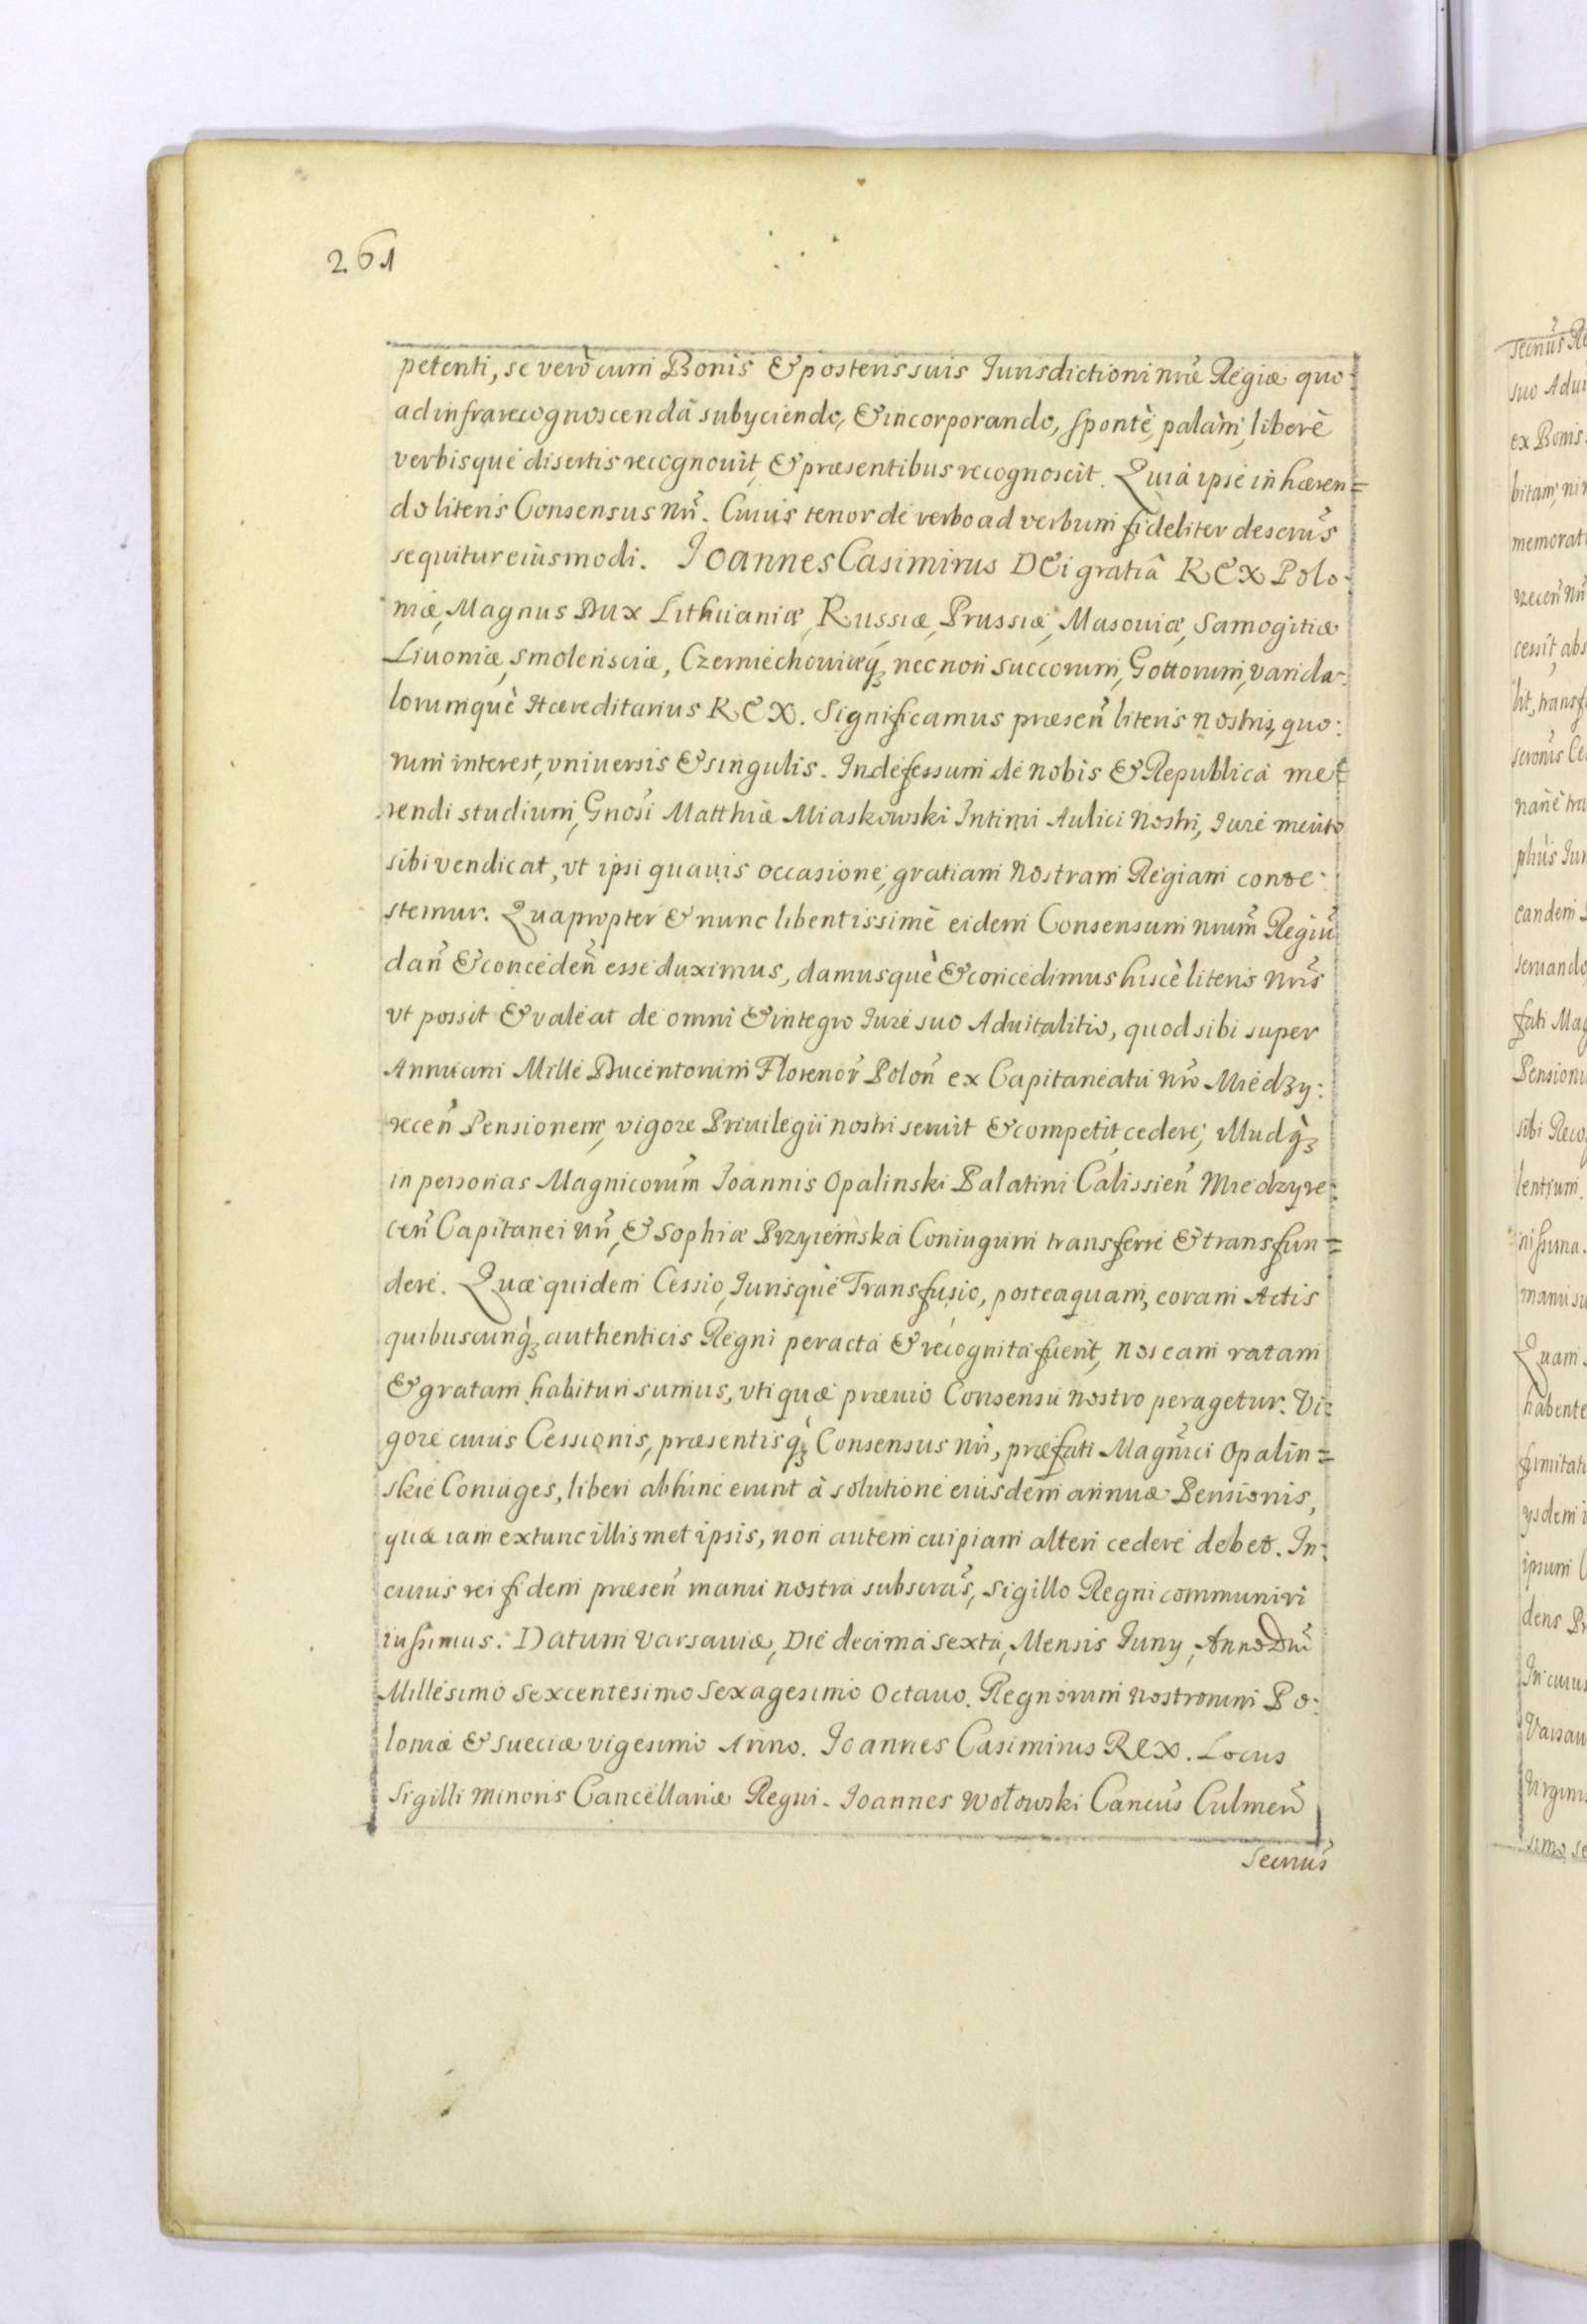 261
petenti, se verò cum Bonis & posteris suis Jurisdictioni nr̃æ Regiæ quo-
ad infra recognoscenda subyciendo, & incorporando, spontè, palàm, liberè
verbisque disertis recognouit, & præsentibus recognoscit. Quia ipse inhæren=
do literis Consensus Nr̃i. Cuius tenor de verbo ad verbum fideliter descrus̃
sequitur eiusmodi. Joannes Casimirus DEi gratiâ REX Polo-
niæ, Magnus Dux Lithuaniæ, Russiæ, Prussiæ, Masouiæ, Samogitiæ
Liuoniæ, Smolensciæ, Czerniechouiæq́ꝫ necnon Succorum, Gottorum, Vanda-
lorumquè Hæreditarius REX. Significamus præsen̄ literis nostris, quo:
rum interest, vniuersis & singulis. Indefessum de nobis & Republica me-
rendi studium, Gnosi Matthiæ Miaskowski Intimi Aulici Nostri, Iure merito
sibi vendicat, vt ipsi quauis occasione, gratiam Nostram Regiam conte-
stemur. Quapropter & nunc libentissimè eidem Consensum nrum̃ Regiũ
dan̄ & conceden̄ esse duximus, damusquè & concedimus hiscè literis Nris̃
vt possit & valeat de omni & integro Iure suo Aduitalitio, quod sibi super
Annuam Mille Ducentorum Florenor̃ Polon̄ ex Capitaneatu Nrõ Miedzy:
recen̄ Pensionem, vigore Priuilegii nostri seruit & competit, cedere, illudq́ꝫ
in personas Magnicorum̃ Joannis Opalinski Palatini Calissien̄ Miedzyre:
cen̄ Capitanei Nr̃i, & Sophiæ Przyiemska Coniugum transferre & transfun=
dere. Quæ quidem Cessio, Jurisquè Transfusio, posteaquam, coram Actis
quibuscunq́ꝫ authenticis Regni peracta & recognita fuerit, nos eam ratam
& gratam habituri sumus, vti quæ præuio Consensu nostro peragetur. Vi:
gore cuius Cessionis, præsentisq́ꝫ Consensus Nr̃i, præfati Magnici Opalin=
skie Coniuges, liberi abhinc erunt à solutione eiusdem annuæ Pensionis,
quæ iam extunc illismet ipsis, non autem cuipiam alteri cedere debet. In:
cuius rei fidem præsen̄ manu nostra subscras̃, Sigillo Regni communiri
iussimus. Datum Varsauiæ, Die decima sexta, Mensis Juny, Anno Dnĩ
Millesimo Sexcentesimo Sexagesimo Octauo. Regnorum Nostrorum Po:
loniæ & Sueciæ vigesimo Anno. Joannes Casimirus REX. Locus
Sigilli minoris Cancellariæ Regni. Joannes Wołowski Cancus̃ Culmen̄
Secrius̃